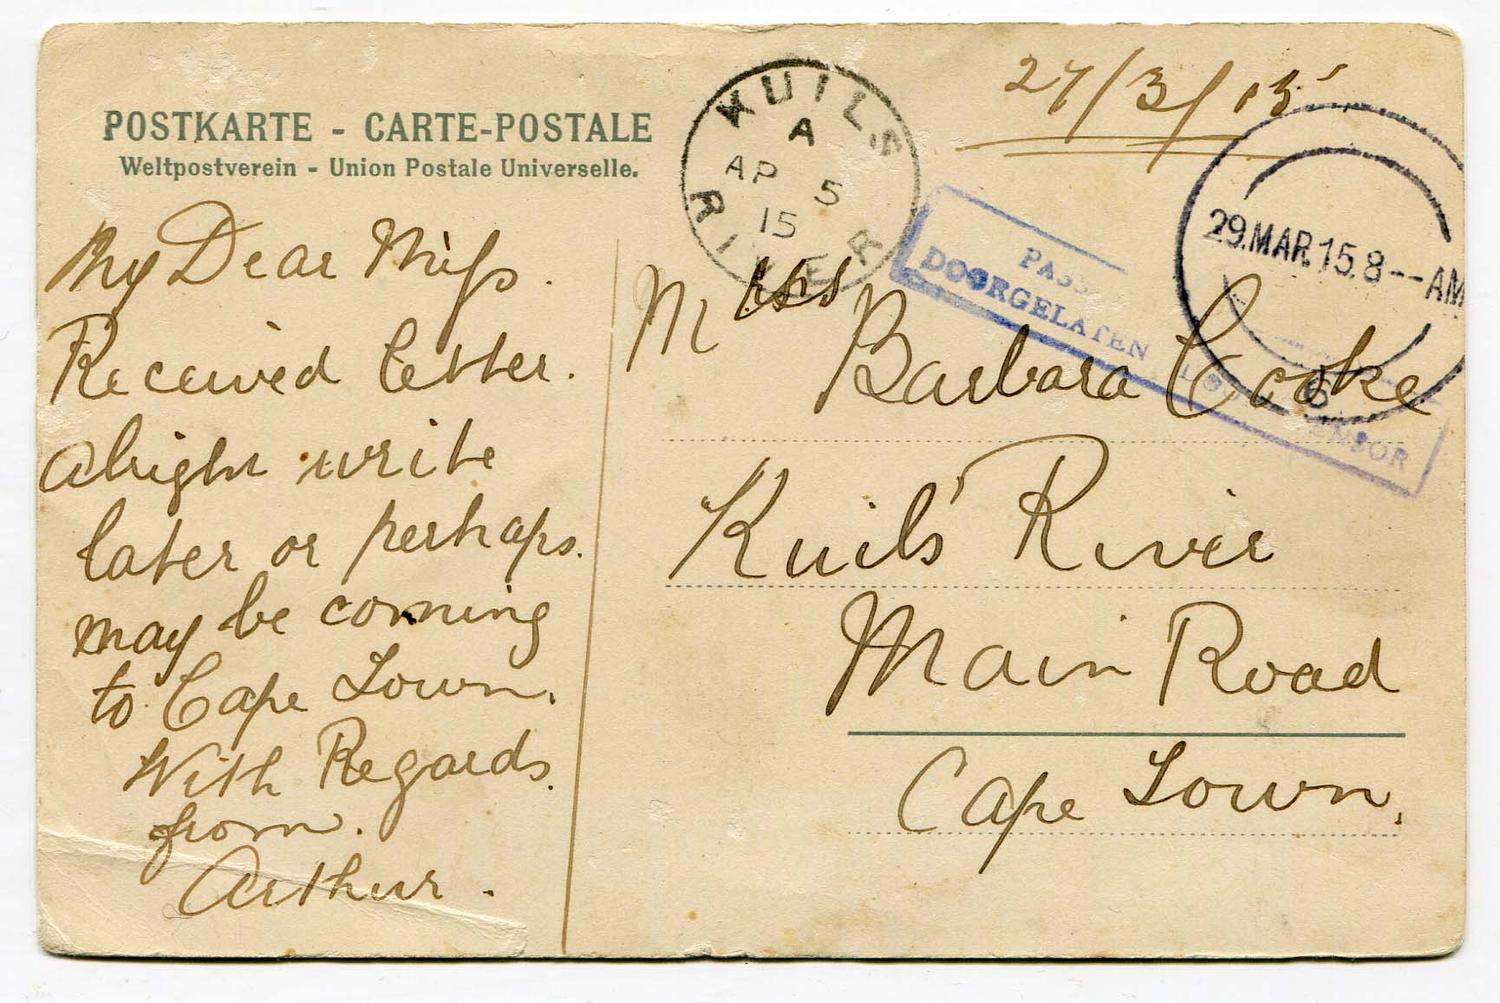 POSTKARTE - CARTE-POSTALE
Weltpostverein - Union Postale Universelle.
KUILS RIVER
A
AP 5
15
27/3/15
29.MAR.15.8--AM
6
DOORGELATEN
My Dear Miss.
Received letter.
alright write
later or perhaps.
may be coming
to Cape Town.
With Regards.
from.
Arthur.
Miss Barbara Cooke
Kuils' River
Main Road
Cape Town.